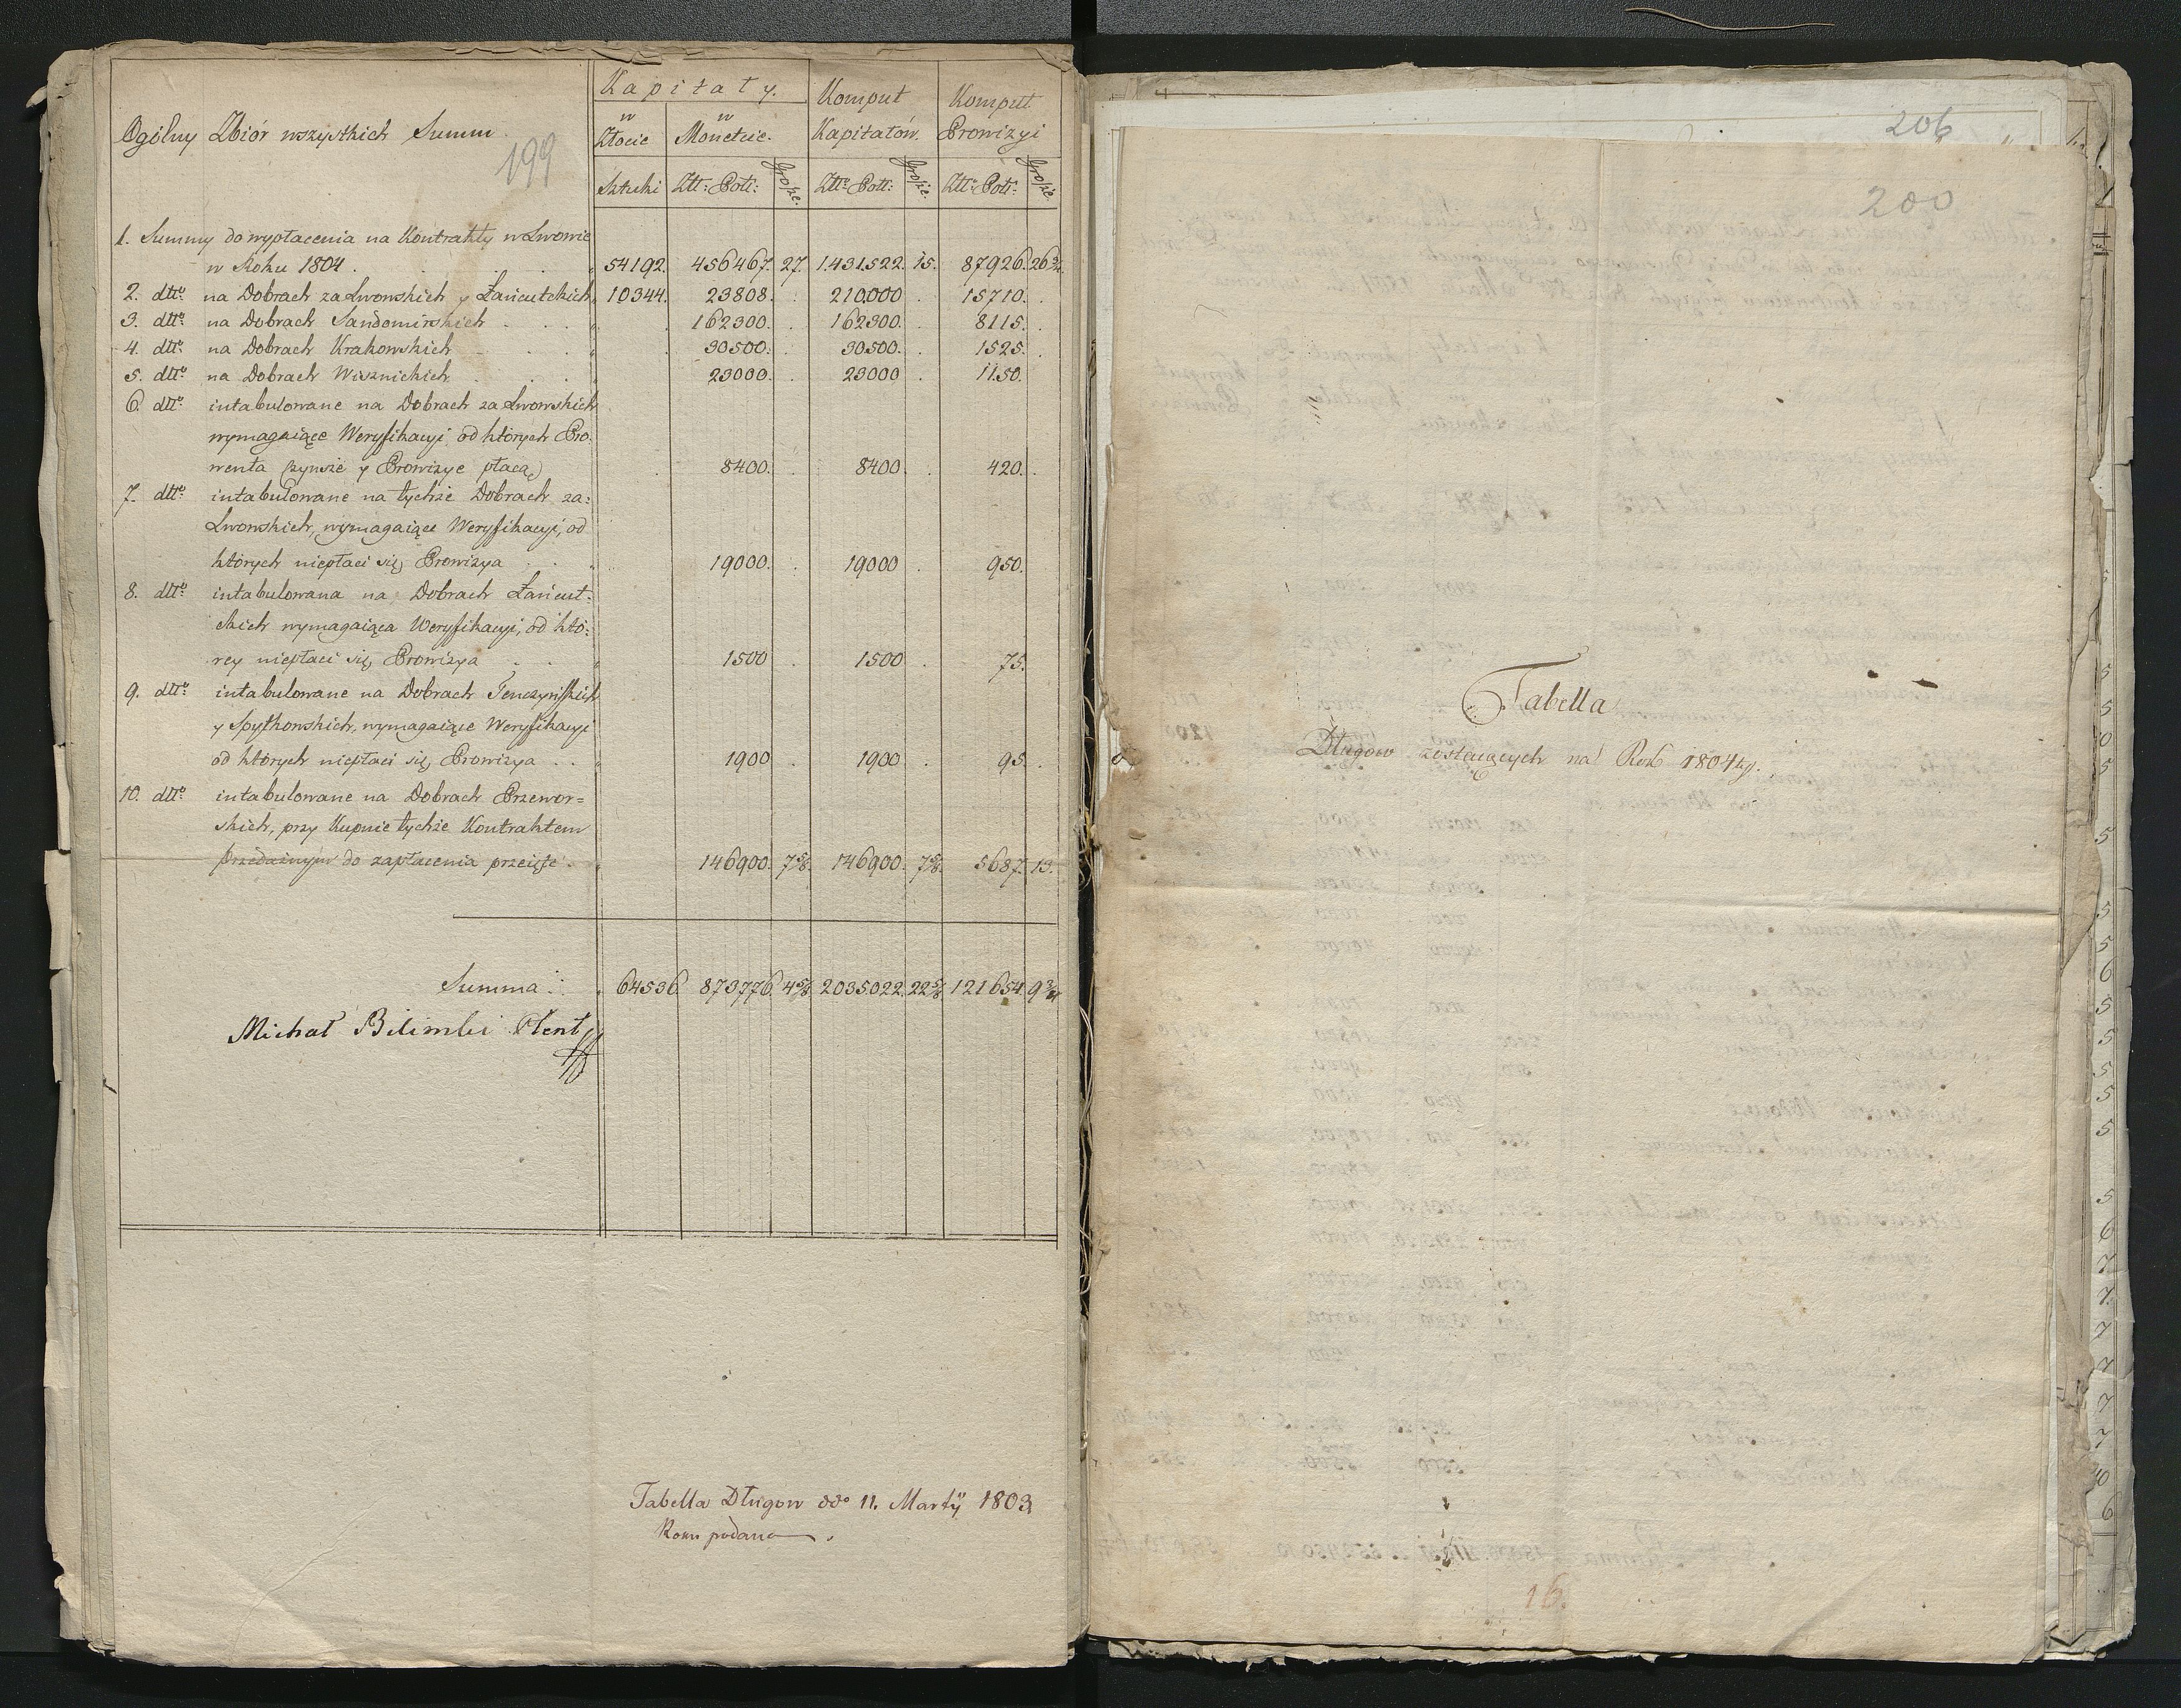 Kapitały.
w
Złocie
w
Monetzie.
Komput
Kapitałów.
Komput
Prowizyi
Ogólny Zbiór wszystkich Summ.
199
Sztuki Złt: Poll: grosze. Złt: Poll: grosze. Złt: Poll: grosze
1. Summy do wypłacenia na Kontrakty w Lwowie
w Roku 1804 . 54192. 456467. 27. 1.431.522. 15. 87926. 26 3/4.
2. dtto na Dobrach za Lwowskich y Łańcutskich 10344. 23808. 210.000 . 15710.
3. dtto na Dobrach Sandomirskich 162300. 162300. 8115.
4. dtto na Dobrach Krakowskich 30500. 30500. 1525.
5. dtto na Dobrach Wisznickich 23000. 23000 . 1150.
6. dtto intabulowane na Dobrach za Lwowskich
wymagaiące Weryfikacyi, od których Pro-
wenta czynsze y Prowizye płacą 8400. 8400. 420.
7. dtto intabulowane na tychże Dobrach za:
Lwowskich, wymagaiące Weryfikacyi, od
których niepłaci się Prowizya 19000. 19000 . 950.
8. dtto intabulowana na Dobrach Łańcut-
skich wymagaiąca Weryfikacyi, od któ:
rey niepłaci się Prowizya 1500 . 1500 . 75.
9. dtto intabulowane na Dobrach Tenczyńskich
y Spytkowskich, wymagaiące Weryfikacyi
od których niepłaci się Prowizya 1900 . 1900 . 95.
10. dtto intabulowane na Dobrach Przewor=
skich, przy Kupnie tychże Kontraktem
przedażnym do zapłacenia przeięte. 146900. 7 5/8. 146900. 7 5/8. 5687. 13.
Summa: 64536. 873776. 4 5/8 2035.022. 22 5/8 121654. 9 3/4
Michał Bilinski Plent
Tabella Długow ddo 11. Martÿ 1803
Roku podana.
206
200
Tabella
Długow zostaiących na Rok 1804ty.
16.